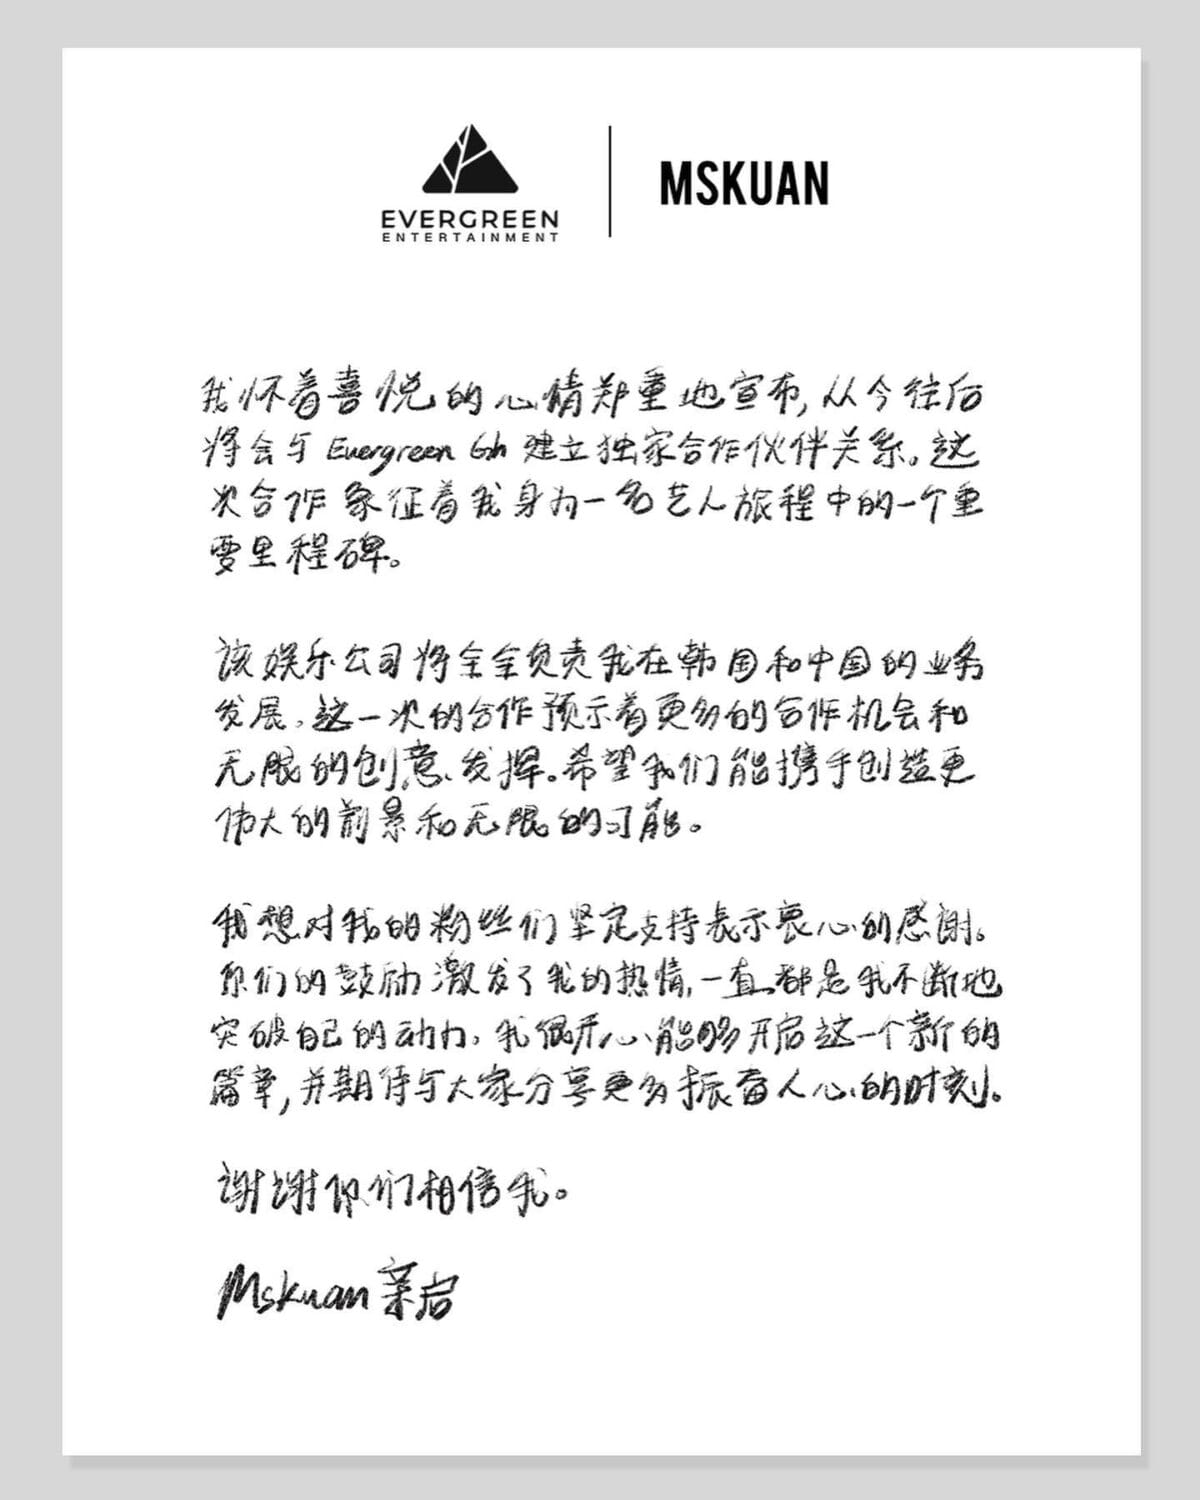 EVERGREEN
ENTERTAINMENT
MSKUAN
我怀着喜悦的心情郑重地宣布,从今往后
将会与 Evergreen Gh 建立独家合作伙伴关系。这
次合作象征着我身为一名艺人旅程中的一个重
要里程碑。
该娱乐公司将全全负责我在韩国和中国的业务
发展。这一次的合作预示着更多的合作机会和
无限的创意发挥。希望我们能携手创造更
伟大的前景和无限的可能。
我想对我的粉丝们坚定支持表示衷心的感谢。
你们的鼓励激发了我的热情,一直都是我不断地
突破自己的动力。我很开心能够开启这一个新的
篇章,并期待与大家分享更多振奋人心的时刻。
谢谢你们相信我。
Mskuan 亲启